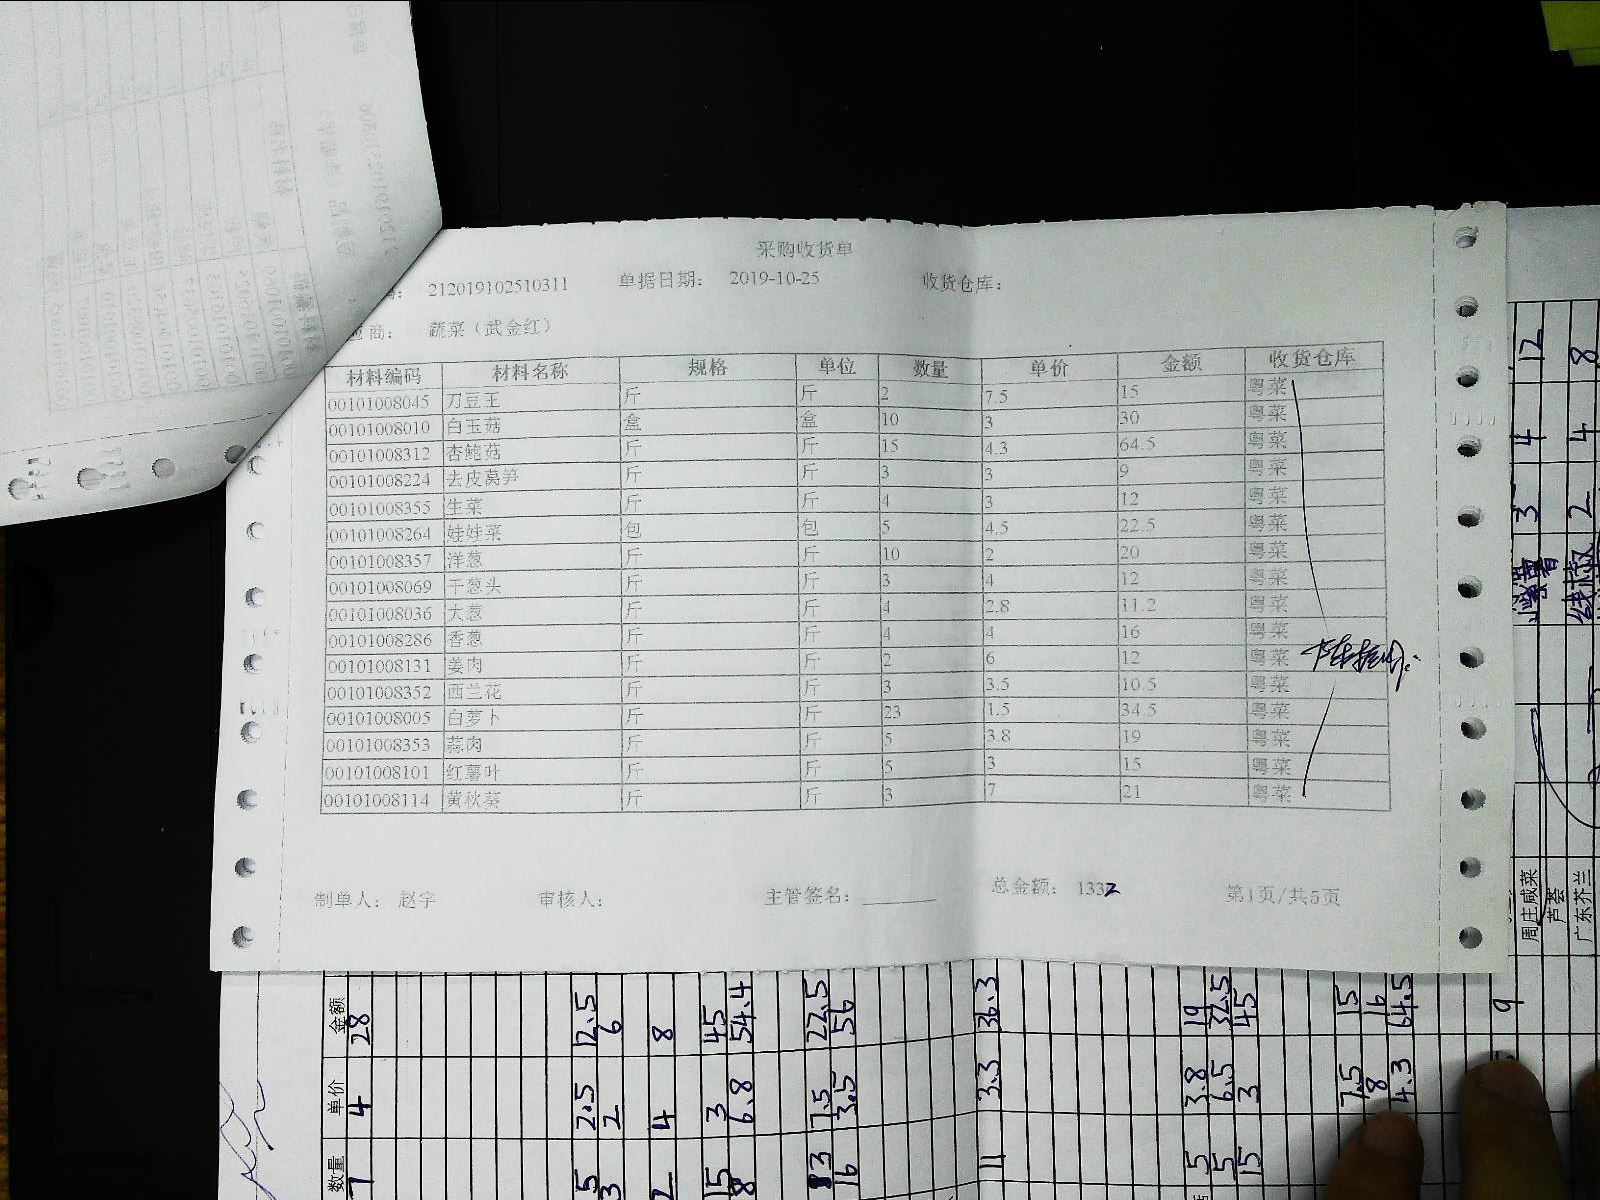 采购收货单
212019102510311 单据日期: 2019-10-25 收货仓库:
商: 蔬菜(武金红)
材料编码 材料名称 规格 单位 数量 单价 金额 收货仓库
00101008045 刀豆王 斤 斤 2 7.5 15 粤菜
00101008010 白玉菇 盒 盒 10 3 30 粤菜
00101008312 杏鲍菇 斤 斤 15 4.3 64.5 粤菜
00101008224 去皮莴笋 斤 斤 3 3 9 粤菜
00101008355 生菜 斤 斤 4 3 12 粤菜
00101008264 娃娃菜 包 包 5 4.5 22.5 粤菜
00101008357 洋葱 斤 斤 10 2 20 粤菜
00101008069 干葱头 斤 斤 3 4 12 粤菜
00101008036 大葱 斤 斤 4 2.8 11.2 粤菜
00101008286 香葱 斤 斤 4 4 16 粤菜
00101008131 姜肉 斤 斤 2 6 12 粤菜
00101008352 西兰花 斤 斤 3 3.5 10.5 粤菜
00101008005 白萝卜 斤 斤 23 1.5 34.5 粤菜
00101008353 蒜肉 斤 斤 5 3.8 19 粤菜
00101008101 红薯叶 斤 斤 5 3 15 粤菜
00101008114 黄秋葵 斤 斤 3 7 21 粤菜
制单人: 赵宇 审核人: 主管签名: 总金额: 1332 第1页/共5页
数量 单价 金额
7 4 28
5 2.5 12.5
3 2 6
2 4 8
15 3 45
8 6.8 54.4
3 7.5 22.5
16 3.5 56
11 3.3 36.3
5 3.8 19
5 6.5 32.5
15 3 45
7.5 15
8 16
4.3 64.5
9
周庄咸菜
芦荟
广东芥兰
紫薯 3 4 12
线椒 2 4 8